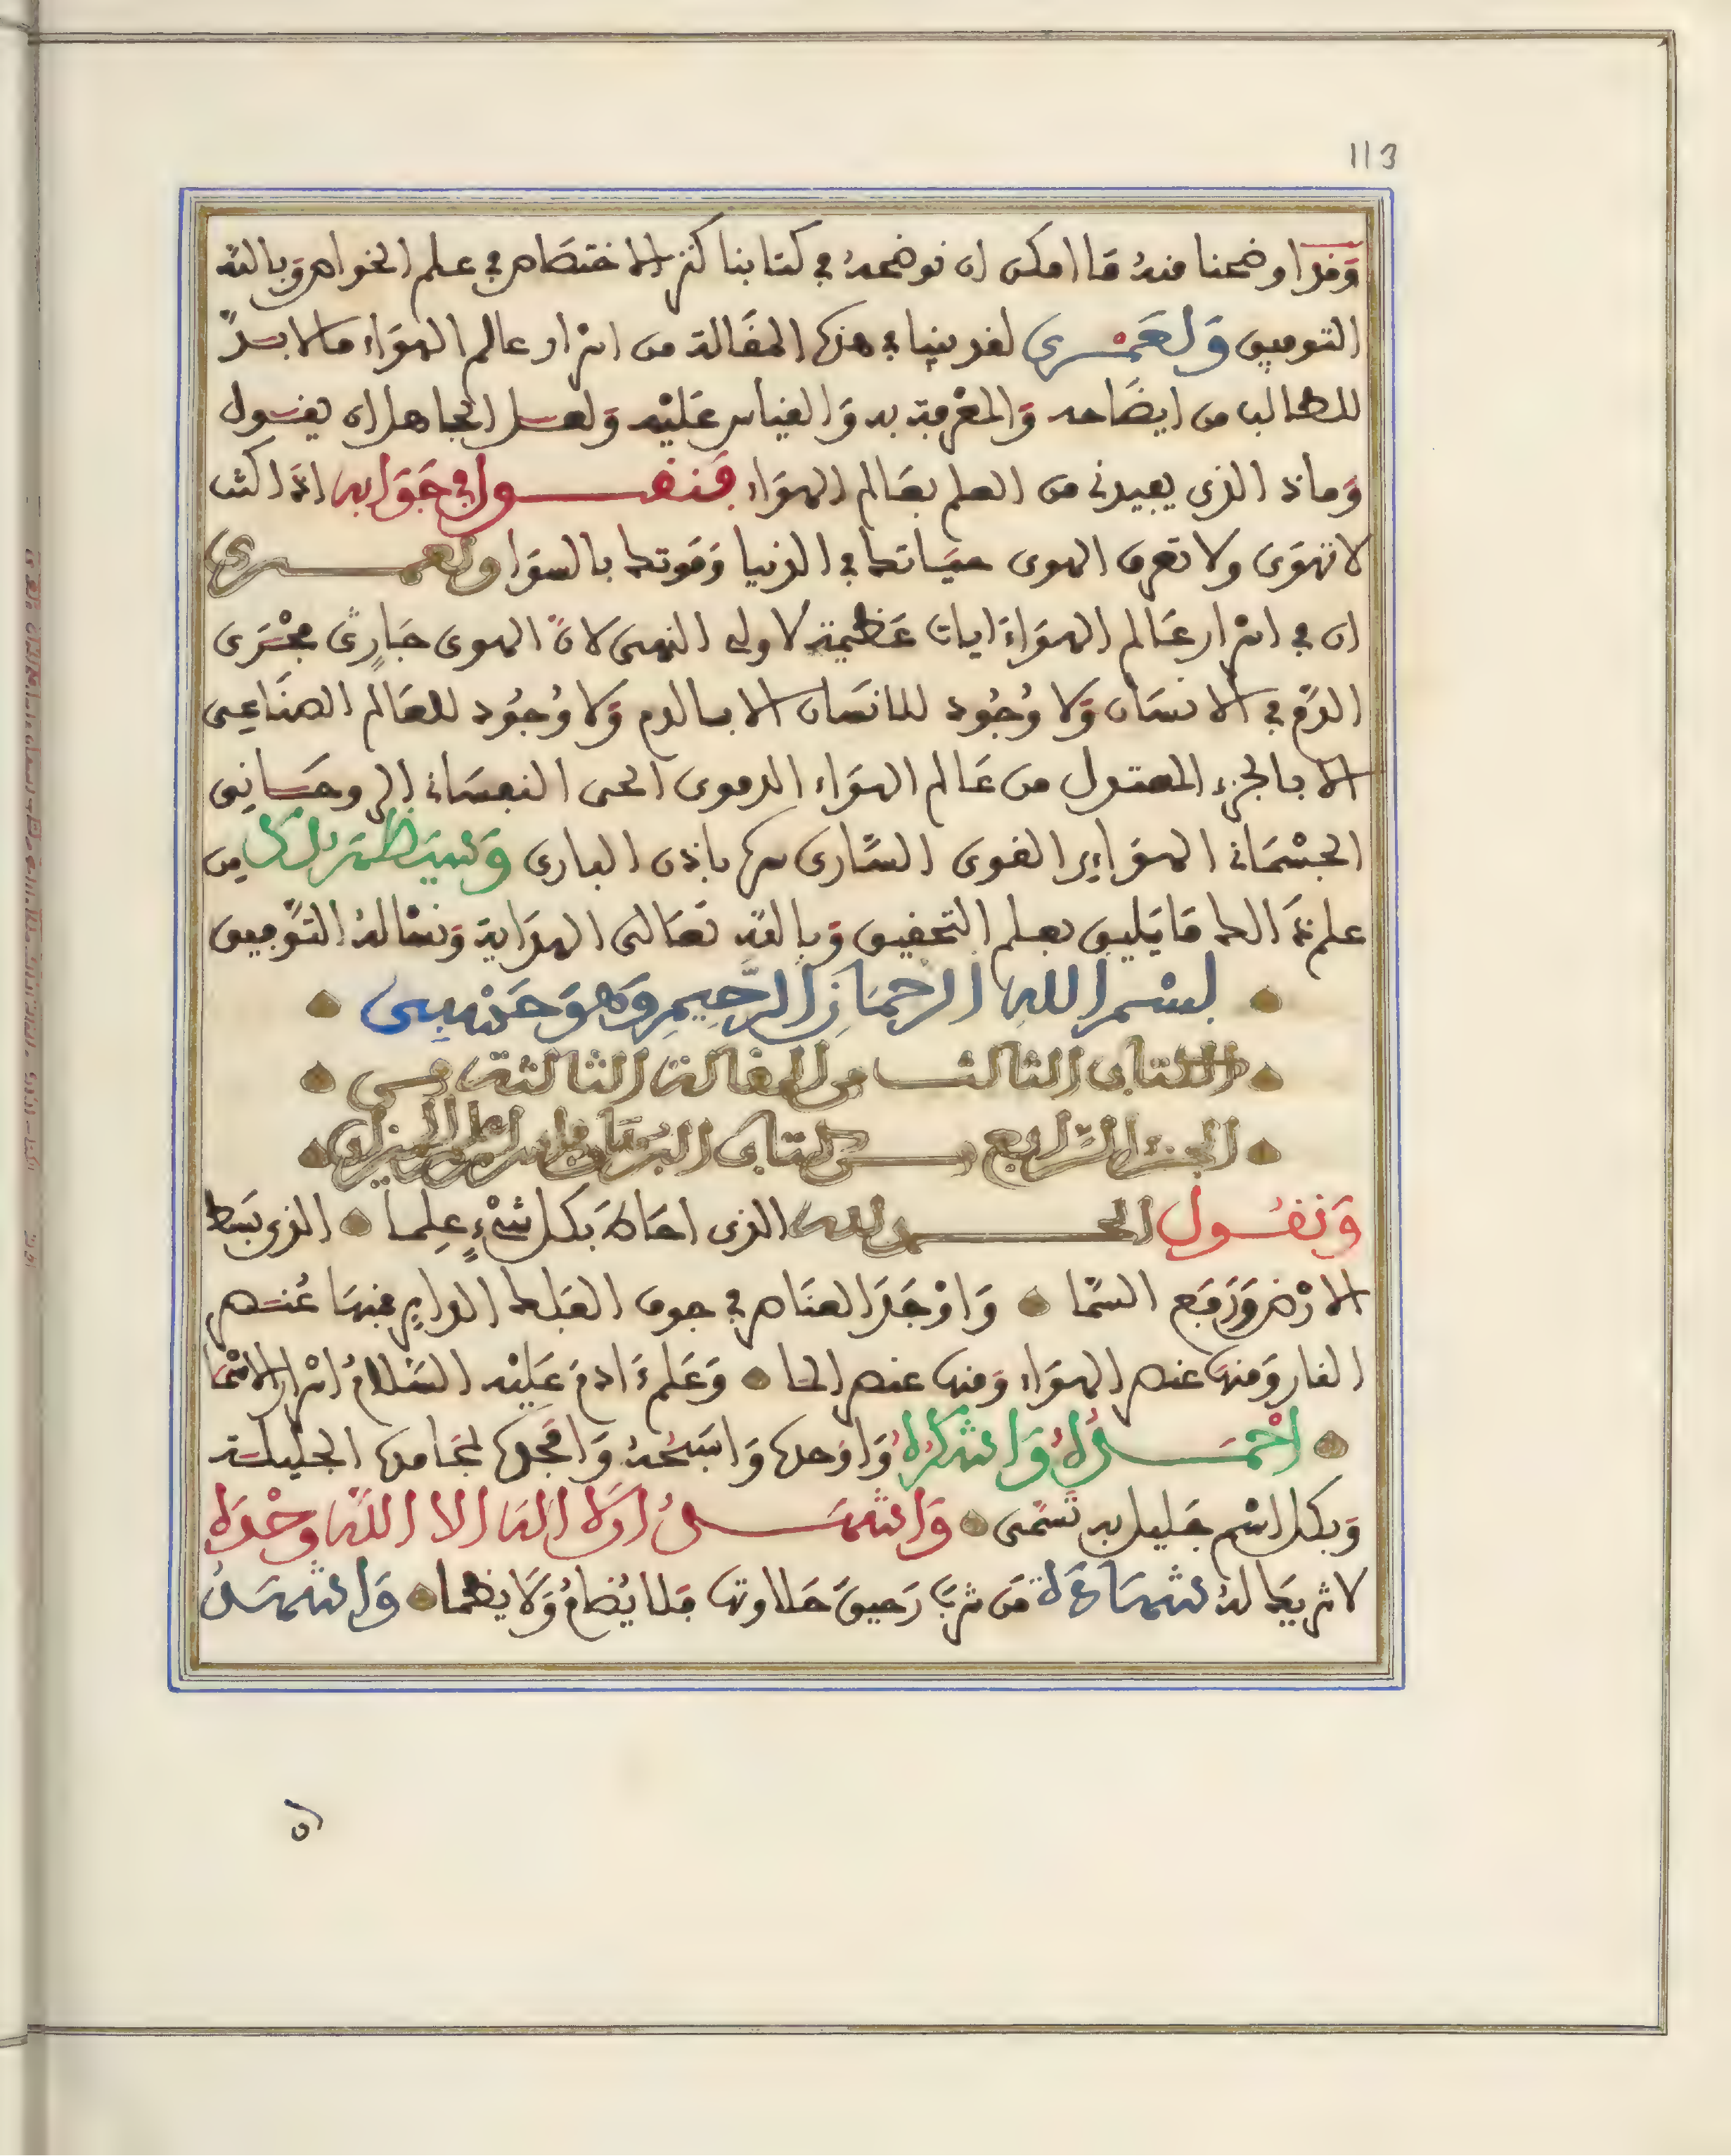 113
وَقد اوضحنا منهُ مَا امكن ان نوضحهُ في كتابنا كنز الاختصَاص في علم الخواص وَبالله
التوفيق وَلعَمْرى لقد بينا في هذه المقَالة من اسْرار عالم الهوَاء ما لا بدَّ
للطالب من ايضَاحه وَالمعْرفة به وَالقياس عَليْه وَلعل الجاهل ان يقول
وَماذ الذى يفيدنى من العلم بعَالم الهوَاء فنقول في جَوَابه اذَا كنت
لا تهوَى ولا تعرف الهوى حيَاتك في الدنيا وَمَوتك بالسوَا ولعمرى
ان في اسْرار عَالم الهوَاءَ ايات عَظيمة لاولى النهى لانَّ الهوى جَارٍى مجْرَى
الدَّم في الانسَان وَلا وُجُود للانسَان الا بالدم وَلا وُجوُد للعَالم الصنَاعِى
الا بالجزء المعتدل من عَالم الهوَاء الدموى الحى النفسَانى الروحَانِى
الجسْمَانى الهوَاءى القوى السَّارى سره باذن البارى وَسَيَظهَر لكَ مِن
علم ذَالك مَا يَليق بعلم التحقيق وَبالله تعَالى الهدَاية وَنسْالهُ التَّوفيق
بسْم الله الرحمَانِ الرَّحِيمِ وَهوَ حَسْبِى
الكتاب الثالث من المقالة الثالثة من
الجزء الرَّابع من كتاب البُرهَان في اسرار علم الميزان
وَنقُول الحمد لله الذى احَاط بَكل شىْءٍ عِلما الذى بسَط
الارْض وَرَفع السَّما وَاوْجَدَ العنَاصر في جوف الفلك الداير فمنهَا عُنصر
النار وَمنهَا عنصر الهوَاء وَمنها عنصر الما وَعَلم ءَادمَ عَليْه السَّلامُ اسْرار الاسْمَا
احْمَدُهُ وَاشكرُهُ وَاوَحده وَاسَبّحهُ وَامَجده بمحَامده الجليلة
وَبكل اسْم جَليل به تَسَمَّى وَاشهَدُ ان لا اله الا الله وحْدَه
لا شريك لهُ شهَادَة مَن شربَ رَحيقَ حَلاوتها فلا يُضامُ وَلَا يظما وَاشهَدُ
ان